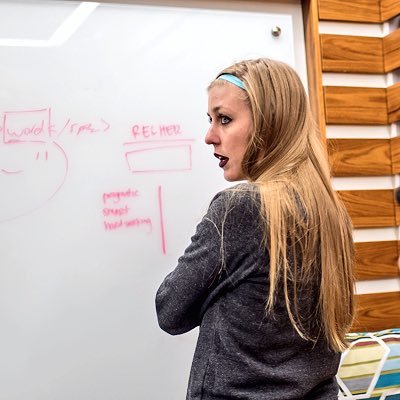 word</span>
RECHER
pragmatic
smart
hard working